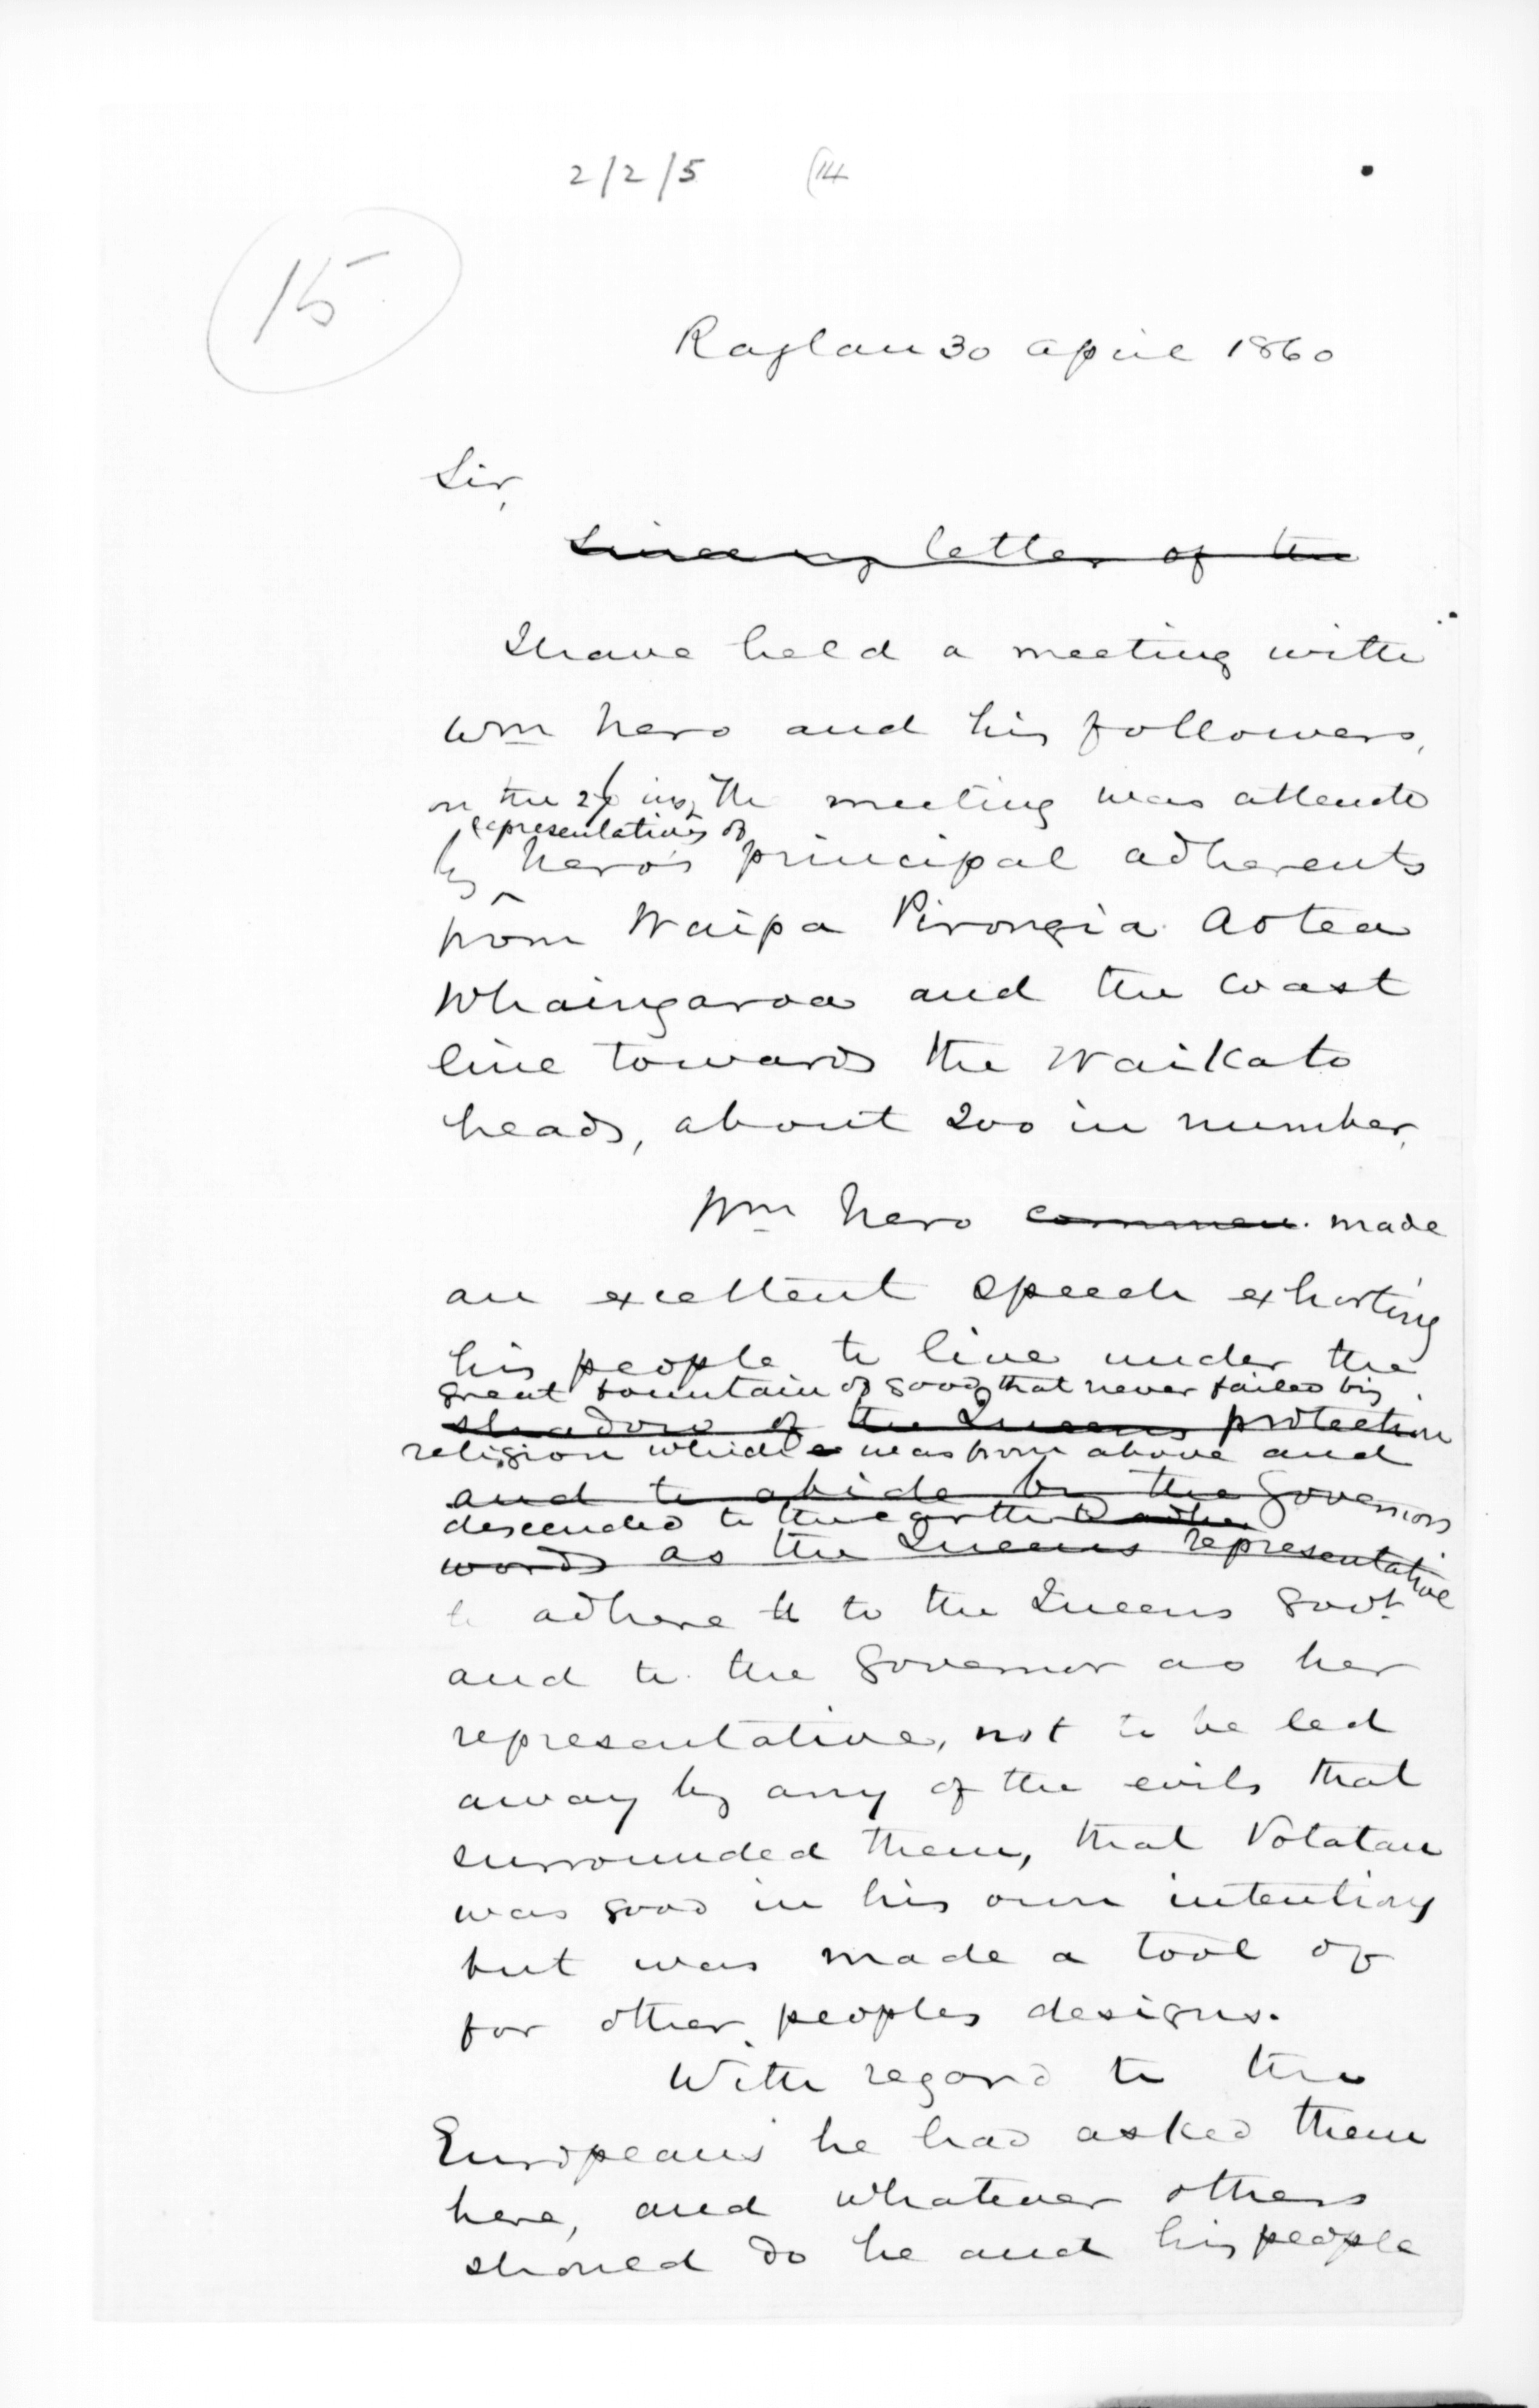 2/2/5 (14
15
Raglan 30 April 1860
Sir,
Since my letter of the
I have held a meeting with
Wm Nero and his followers,
on the inst The meeting was attendd
representatives of
by Nero's principal adherents
from Waipa Pirongia Aotea
Whaingaroa and the coast
line towards the Waikato
heads, about 200 in number,
Wm Nero commen. made
an excellent speech exhorting
his people to live under the
great fountain of good that never failed his
shadow of the Queens protection
religion which was from above and
and to abide by the Governors
descended to the earth to adhere
words as the Queens representative
to adhere tt to the Queens Govt.
and to the Governor as her
representative, not to be led
away by any of the evils that
surrounded them, that Potatau
was good in his own intentions
but was made a tool of
for other peoples designs.
With regard to the
Europeans he had asked them
here, and whatever others
should do he and his people